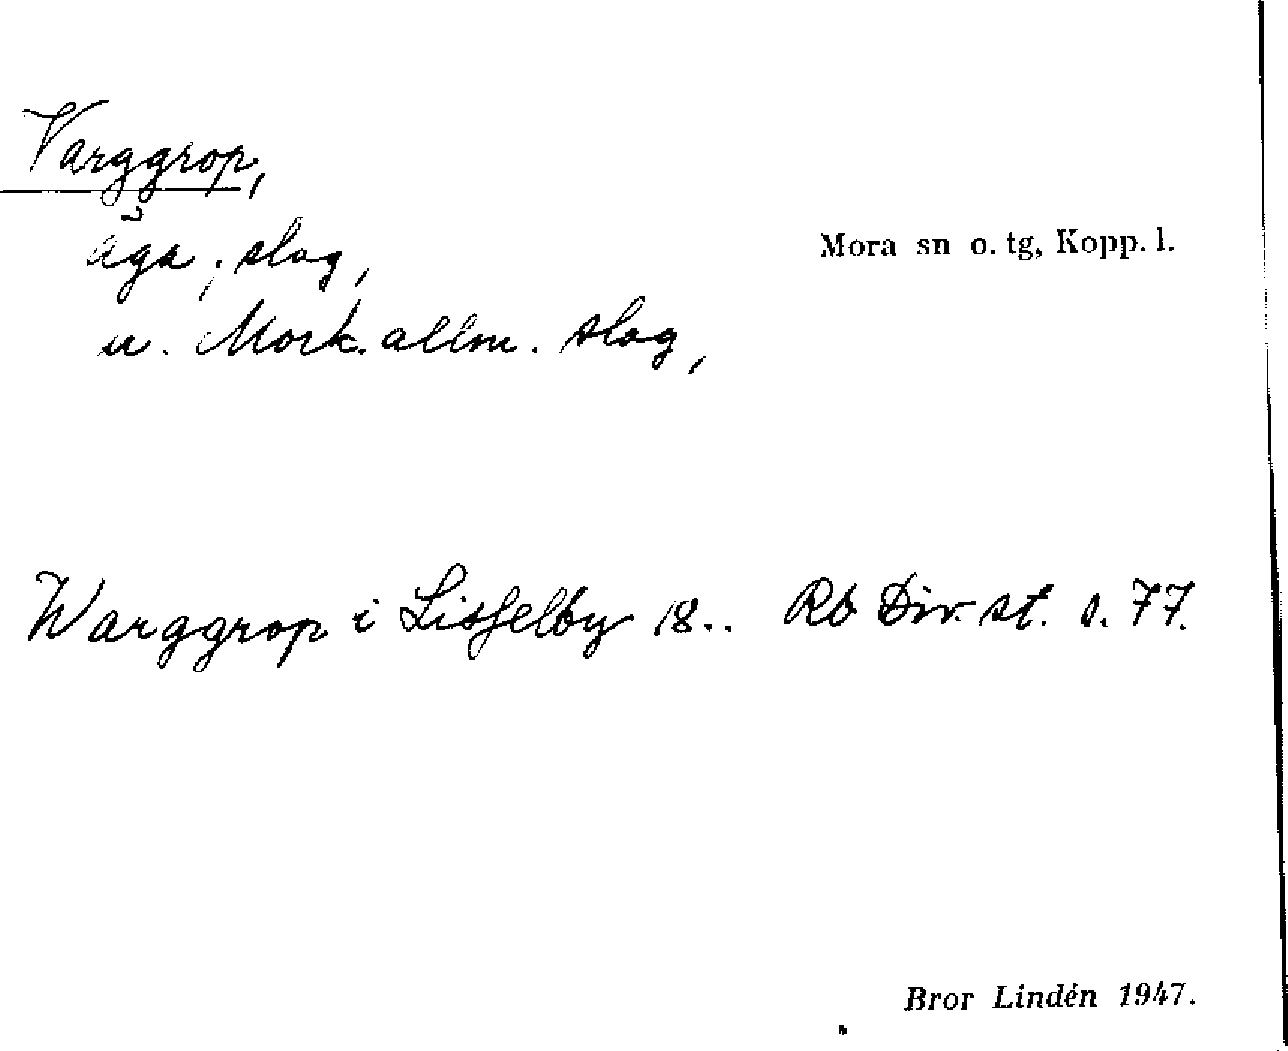 Varggrop,
äga, slog,
Mora sn o. tg, Kopp. l.
u. Mork. allm. slog,
Warggrop i Lisselby 18.. Rb Div. st. s. 77.
Bror Lindén 1947.